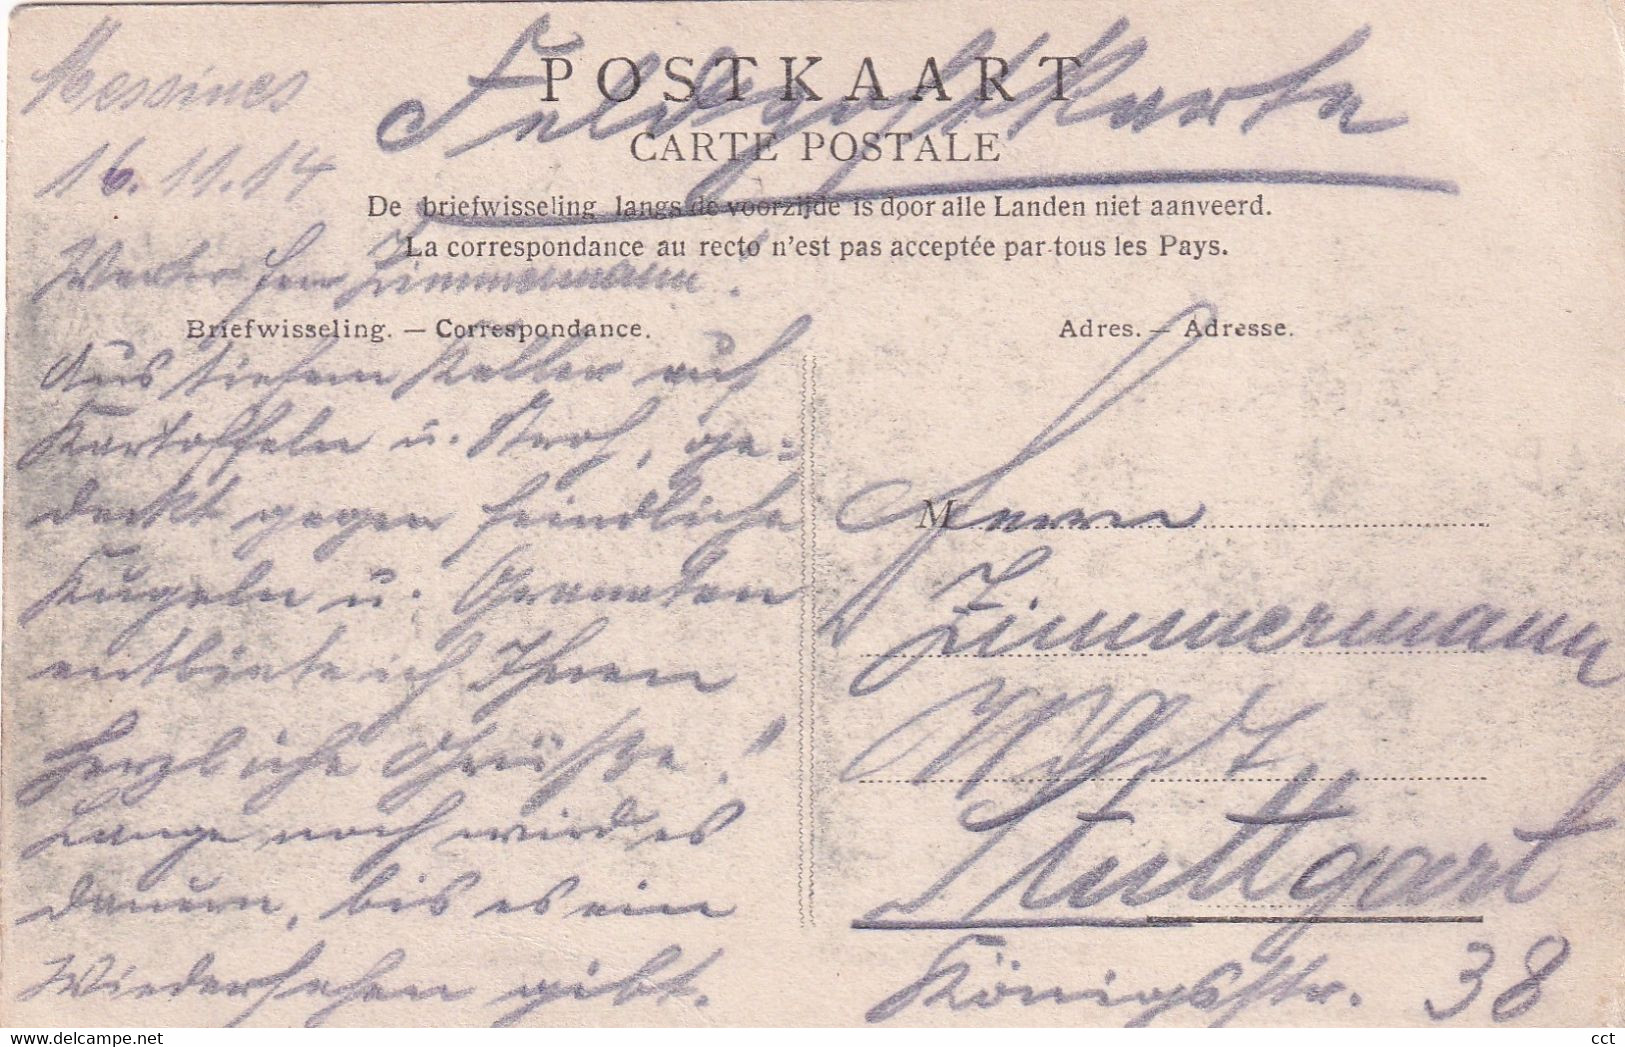 POSTKAART
Feldpostkarte
CARTE POSTALE
De briefwisseling langs de voorzijde is door alle Landen niet aanveerd.
La correspondance au recto n'est pas acceptée par tous les Pays.
Messines
16.11.14
Werter Herr Zimmermann!
Briefwisseling. — Correspondance.
Aus tiefem Keller auf
Kartoffeln u. Stroh, ge=
deckt gegen feindliche
Kugeln u. Granaten
entbiete ich Ihnen
herzliche Grüße!
Lange noch wird es
dauern, bis es ein
Wiedersehen gibt.
Adres. — Adresse.
M
Herrn
Zimmermann
Stuttgart
Königsstr. 38
www.delcampe.net
cct